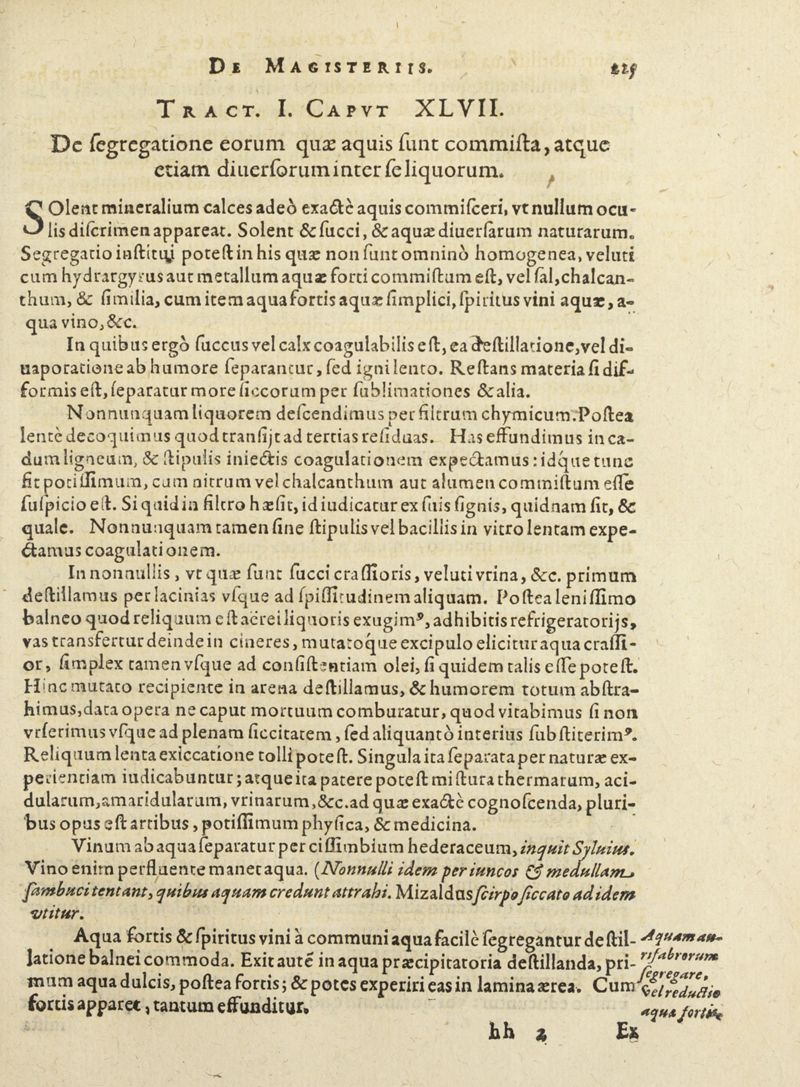 DE MAGISTERIIS. 225
TRACT. I. CAPVT XLVII.
De ſegregatione eorum quæ aquis ſunt commiſta, atque
etiam diuerſorum inter ſe liquorum.
SOlent mineralium calces adeò exactè aquis commiſceri, vt nullum ocu-
lis diſcrimen appareat. Solent & ſucci, & aquæ diuerſarum naturarum.
Segregatio inſtitui poteſt in his quæ non ſunt omninò homogenea, veluti
cum hydrargyrus aut metallum aquæ forti commiſtum eſt, vel ſal, chalcan-
thum, & ſimilia, cum item aqua fortis aquæ ſimplici, ſpiritus vini aquæ, a-
qua vino, &c.
In quibus ergò ſuccus vel calx coagulabilis eſt, ea deſtillatione, vel di-
uaporatione ab humore ſeparantur, ſed igni lento. Reſtans materia ſi diſ-
formis eſt, ſeparatur more ſiccorum per ſublimationes & alia.
Nonnunquam liquorem deſcendimus per filtrum chymicum. Poſtea
lentè decoquimus quod tranſijt ad tertias reſiduas. Has effundimus in ca-
dum ligneum, & ſtipulis iniectis coagulationem expectamus: idque tunc
fit potiſſimum, cum nitrum vel chalcanthum aut alumen commiſtum eſſe
ſuſpicio eſt. Si quid in filtro hæſit, id iudicatur ex ſuis ſignis, quidnam ſit, &
quale. Nonnunquam tamen ſine ſtipulis vel bacillis in vitro lentam expe-
ctamus coagulationem.
In nonnullis, vt quæ ſunt ſucci craſſioris, veluti vrina, &c. primum
deſtillamus per lacinias vſque ad ſpiſſitudinem aliquam. Poſtea leniſſimo
balneo quod reliquum eſt aërei liquoris exugimꝰ, adhibitis refrigeratorijs,
vas transfertur deinde in cineres, mutatoque excipulo elicitur aqua craſſi-
or, ſimplex tamen vſque ad conſiſtentiam olei, ſi quidem talis eſſe poteſt.
Hinc mutato recipiente in arena deſtillamus, & humorem totum abſtra-
himus, data opera ne caput mortuum comburatur, quod vitabimus ſi non
vrſerimus vſque ad plenam ſiccitatem, ſed aliquantò interius ſubſtiterimꝰ.
Reliquum lenta exiccatione tolli poteſt. Singula ita ſeparata per naturæ ex-
perientiam iudicabuntur; atque ita patere poteſt miſtura thermarum, aci-
dularum, amaridularum, vrinarum, &c. ad quæ exactè cognoſcenda, pluri-
bus opus eſt artibus, potiſſimum phyſica, & medicina.
Vinum ab aqua ſeparatur per ciſſimbium hederaceum, inquit Syluius.
Vino enim perfluente manet aqua. (Nonnulli idem per iuncos & medullam
ſambuci tentant, quibus aquam credunt attrahi. Mizaldus ſcirpo ſiccato ad idem
vtitur.
Aqua fortis & ſpiritus vini à communi aqua facilè ſegregantur deſtil-
latione balnei commoda. Exit autē in aqua præcipitatoria deſtillanda, pri-
mum aqua dulcis, poſtea fortis; & potes experiri eas in lamina ærea. Cum
fortis apparet, tantum effunditur.
Aquam au-
rifabrorum
ſegregare,
vel reductio
aquæ fortis.
hh 2 Ex